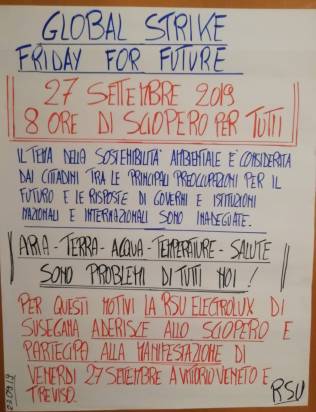 GLOBAL STRIKE
FRIDAY FOR FUTURE
27 SETTEMBRE 2019
8 ORE DI SCIOPERO PER TUTTI
IL TEMA DELLA SOSTENIBILITÀ AMBIENTALE E' CONSIDERATA
DAI CITTADINI TRA LE PRINCIPALI PREOCCUPAZIONI PER IL
FUTURO E LE RISPOSTE DI GOVERNI E ISTITUZIONI
NAZIONALI E INTERNAZIONALI SONO INADEGUATE.
ARIA - TERRA - ACQUA - TEMPERATURE - SALUTE
SONO PROBLEMI DI TUTTI NOI!
PER QUESTI MOTIVI LA RSU ELECTROLUX DI
SUSEGANA ADERISCE ALLO SCIOPERO E
PARTECIPA ALLA MANIFESTAZIONE DI
VENERDI 27 SETTEMBRE A VITTORIO VENETO E
TREVISO.
RSU